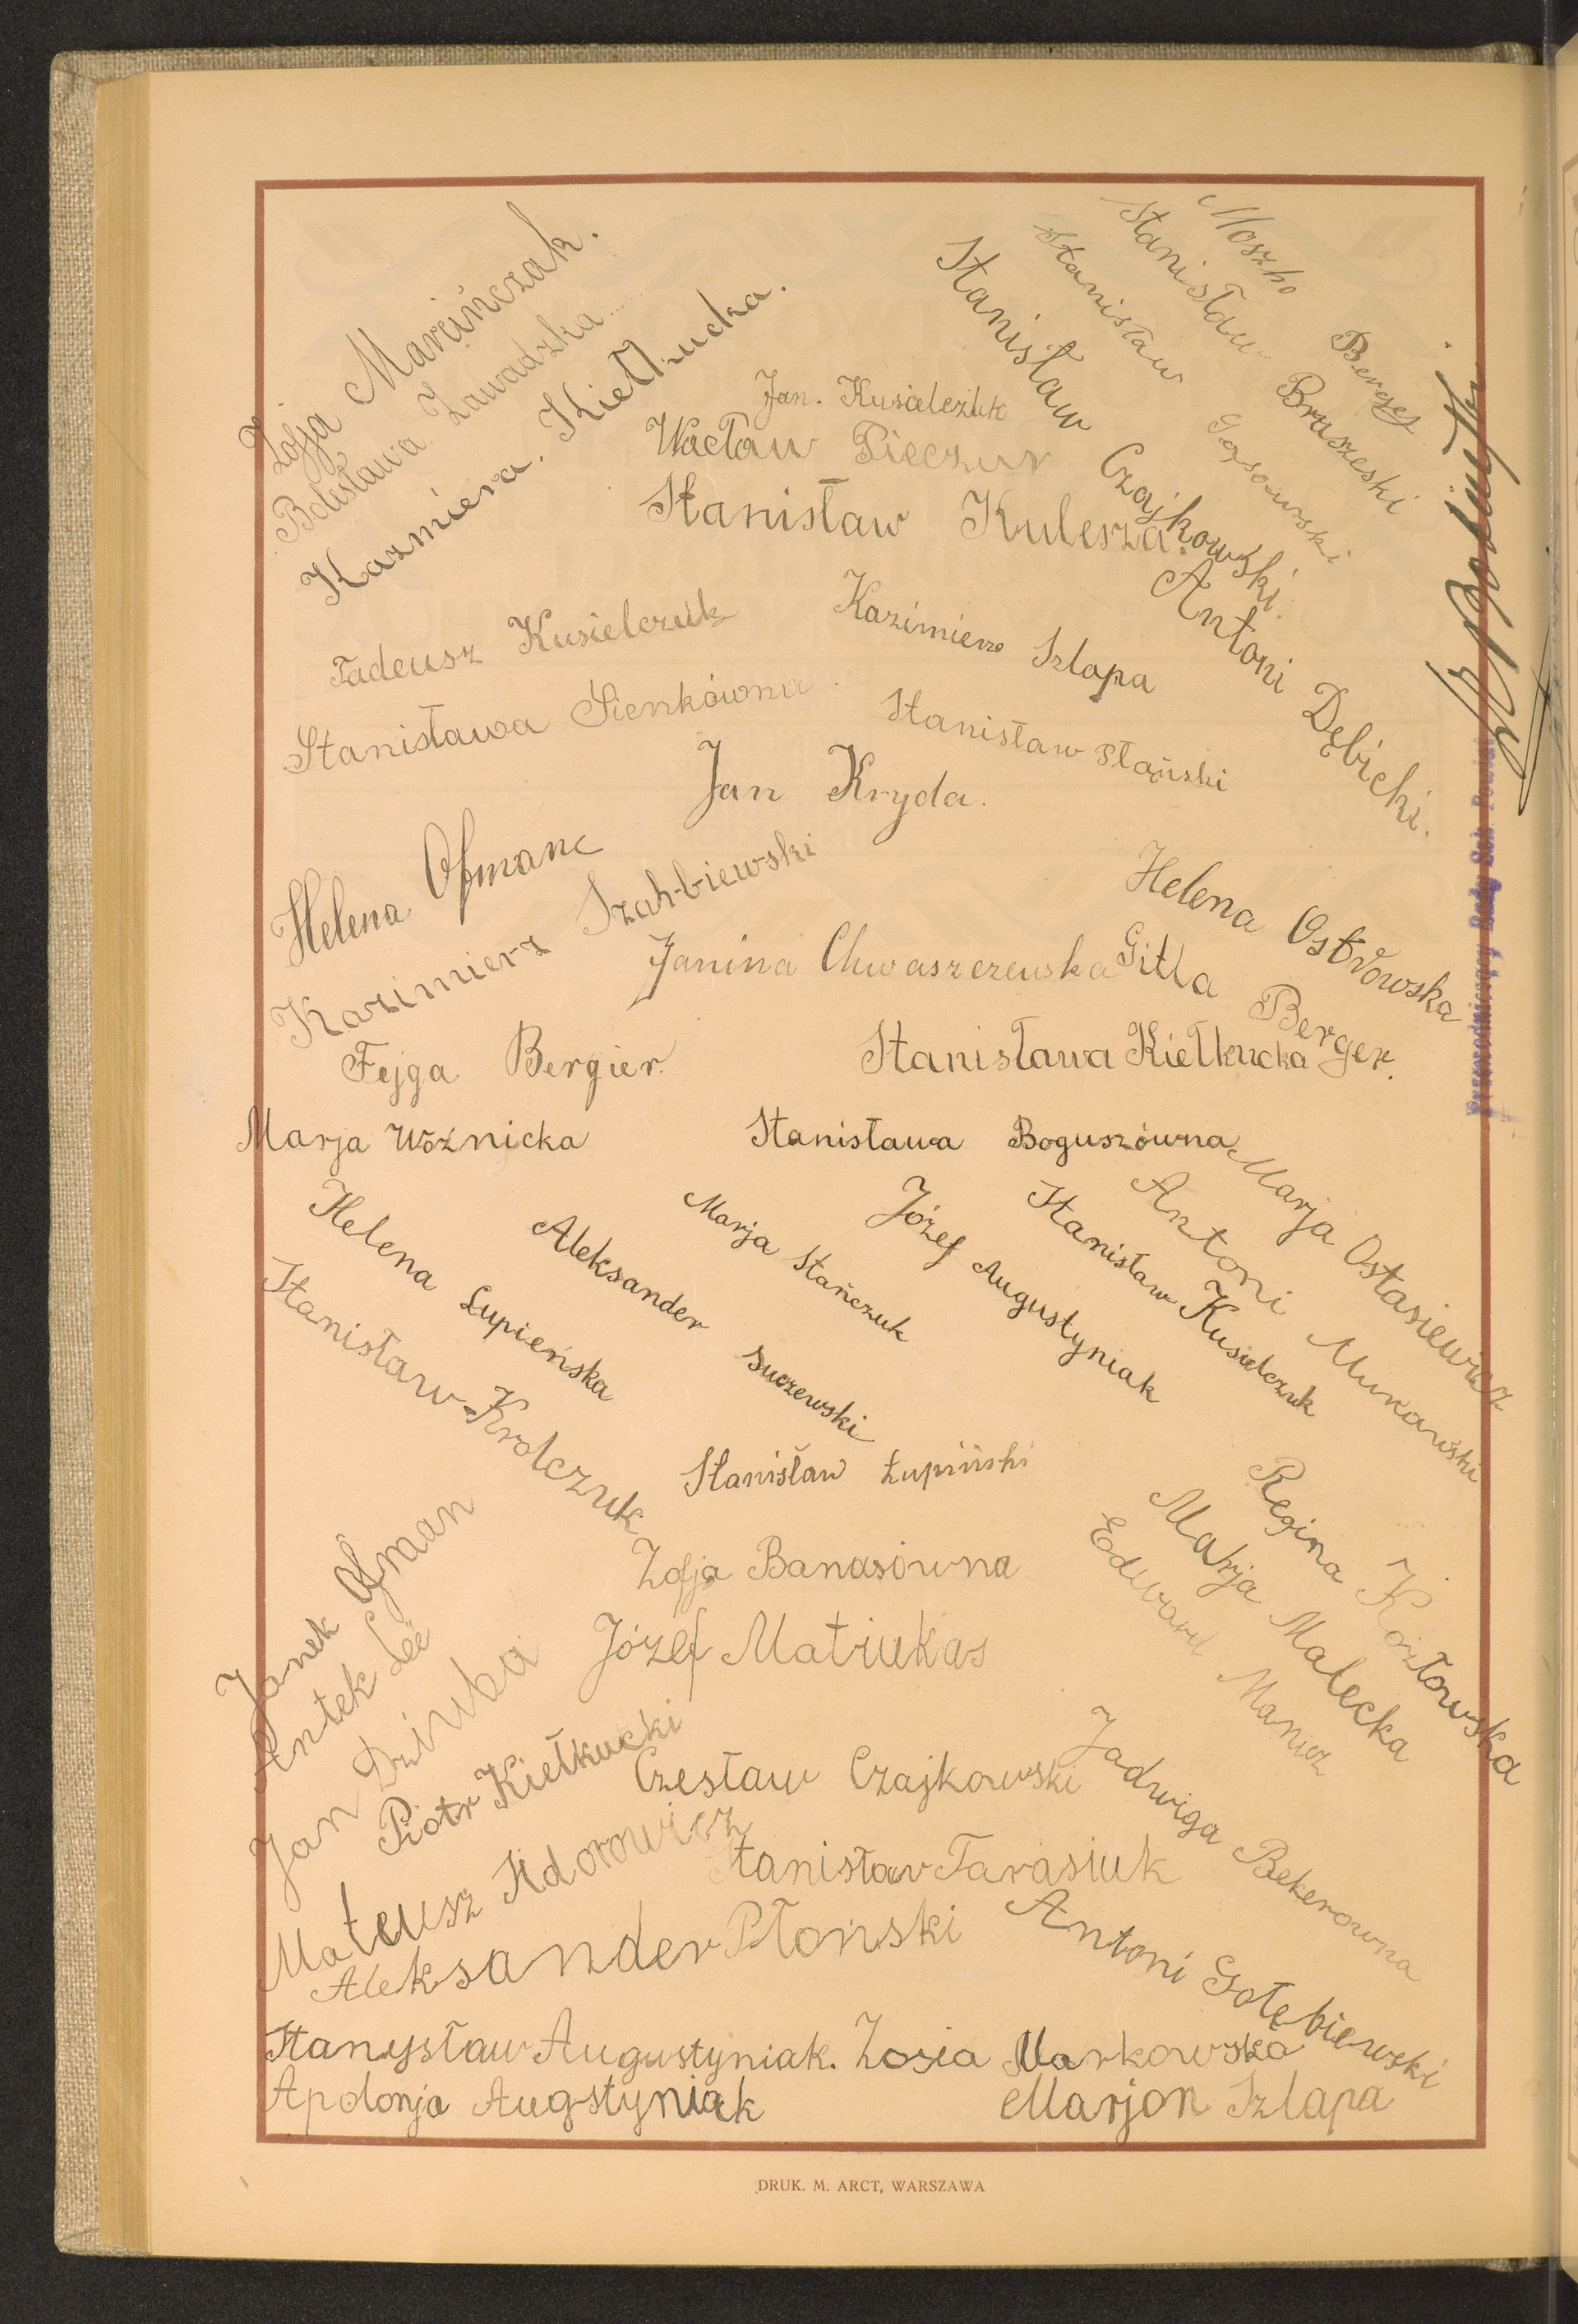 Zofja Marcińczak.
Bolesława Zawadzka
Kazimiera. Kiełkucka.
Jan. Kusielczuk
Wacław Pieczur
Stanisław Kulesza.
Stanisław Czajkowski.
Stanisław Gąsowski
Stanisław Bruszeski
Moszko Berger
Antoni Dębicki.
Tadeusz Kusielczuk
Kazimierz Szlapa
Stanisława Sienkówna.
Stanisław Płoński
Jan Kryda.
Helena Ofmanc
Kazimierz
Janina Chwaszczewska
Helena Ostrowska
Gitla Berger.
Fejga Bergier.
Stanisława Kiełkucka
Przewodniczący Rady Szk. Powiat.
Marja Woźnicka
Stanisława Boguszówna
Marja Ostasiewicz
Antoni Murawski
Stanisław Kusielczuk
Józef Augustyniak
Marja Stańczuk
Aleksander Suczewski
Helena Łupieńska
Stanisław Krolczuk
Stanisław Łupiński
Zofja Banasówna
Józef Matiukas
Regina Kozłowska
Marja Malecka
Edward Maniez
Janek Ofman
Antek
Jan Dziuba
Piotr Kiełkucki
Czesław Czajkowski
Jadwiga Bekerowna
Mateusz Sidorowicz
Stanisław Tarasiuk
Aleksander Płonski
Antoni Gołębiewski
Stanysław Augustyniak.
Zosia Markowska
Apolonja Augstyniak
Marjon Szlapa
DRUK. M. ARCT, WARSZAWA